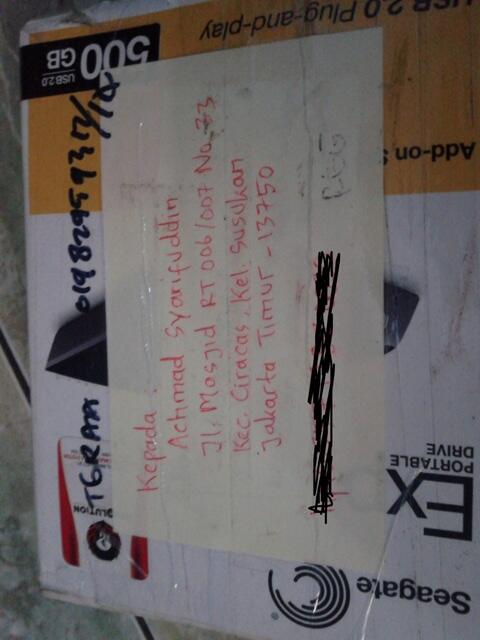 Kepada :
Achmad Syarifuddin
Jl. Masjid RT 006/007 No. 33
Kec. Ciracas, Kel. Susukan
Jakarta Timur - 13750
500
GB
USB 2.0
USB 2.0 Plug-and-play
Add-on S
Ex
PORTABLE
DRIVE
Seagate
OLUTION